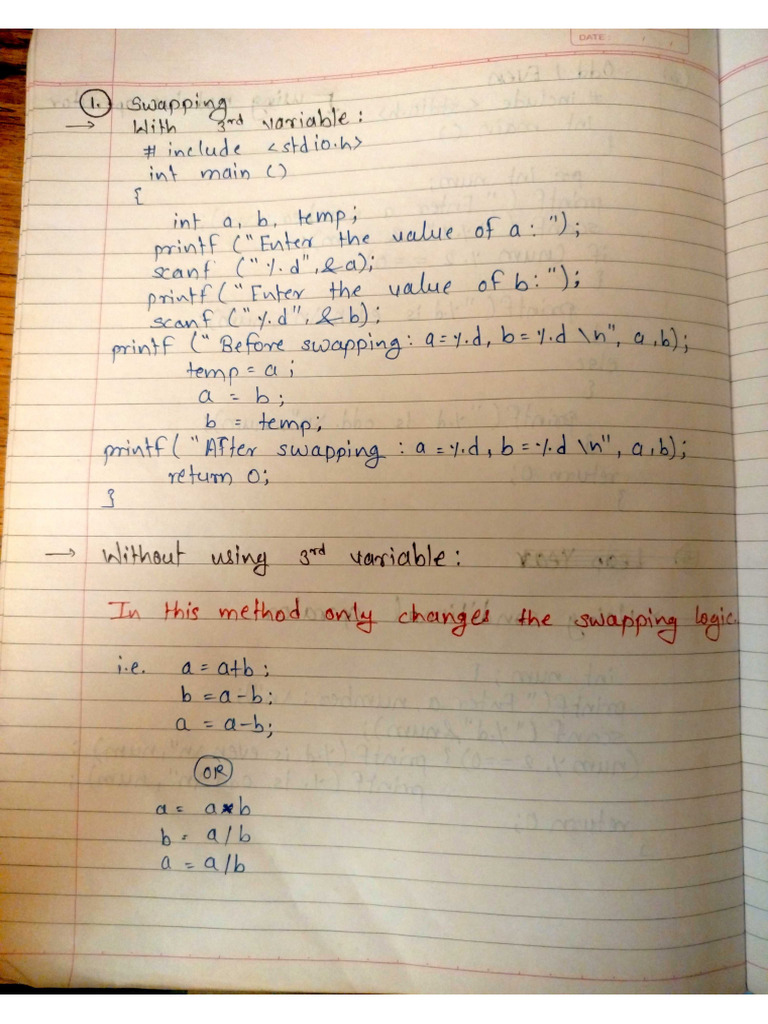 DATE:
1. Swapping
→ With 3rd variable:
# include <stdio.h>
int main ()
{
int a, b, temp;
printf ("Enter the value of a: ");
scanf ("%d",&a);
printf ("Enter the value of b: ");
scanf ("%d", &b);
printf (" Before swapping: a=%d, b=%d \n", a,b);
temp = a;
a = b;
b = temp;
printf( "After swapping : a =%d, b=%d \n", a,b);
return 0;
}
→ Without using 3rd variable:
In this method only changes the swapping logic.
i.e. a = a+b ;
b = a-b;
a = a-b;
OR
a = a*b
b = a/b
a = a/b